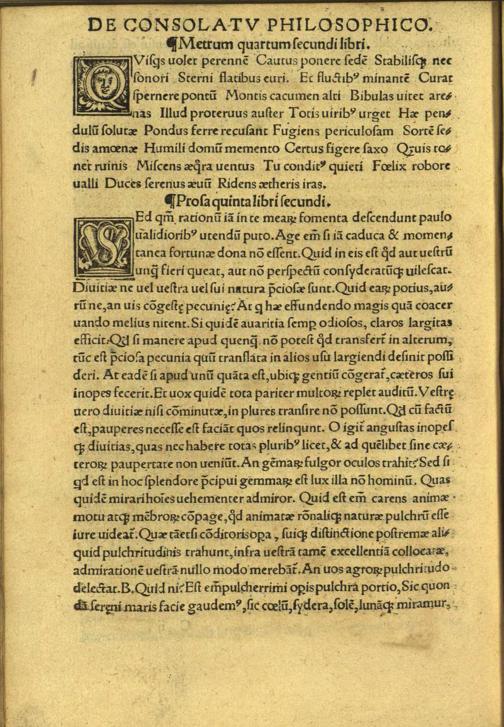 DE CONSOLATV PHILOSOPHICO.
¶Metrum quartum secundi libri.
QVisq̃s uolet perennẽ Cautus ponere sedẽ Stabilisq̃ nec
sonori Sterni flatibus euri. Et fluctibꝰ minantẽ Curat
spernere pontũ Montis cacumen alti Bibulas uitet are⸗
nas Illud proteruus auster Totis uiribꝰ urget Hæ pen⸗
dulũ solutæ Pondus ferre recusant Fugiens periculosam Sortẽ se⸗
dis amœnæ Humili domũ memento Certus figere saxo Quis to⸗
net ruinis Miscens æq̃ra uentus Tu conditꝰ quieti Fœlix robore
ualli Duces serenus æuũ Ridens ætheris iras.
¶Prosa quinta libri secundi.
SEd qm̃ rationũ iã in te mearꝝ fomenta descendunt paulo
ualidioribꝰ utendũ puto. Age em̃ si iã caduca & momen⸗
tanea fortunæ dona nõ essent. Quid in eis est q̃d aut uestrũ
unq̃ fieri queat, aut nõ perspectũ consyderatũq̃ uilescat.
Diuitiæ ne uel uestra uel sui natura p̃ciosæ sunt. Quid earꝝ potius, au⸗
rũ ne, an uis cõgestę pecunię? At q̃ hæ effundendo magis quã coacer
uando melius nitent. Si quidẽ auaritia semp odiosos, claros largitas
efficit. Qd̃ si manere apud quenq̃ nõ potest q̃d transfert̃ in alterum,
tũc est p̃ciosa pecunia quũ translata in alios usu largiendi desinit possi
deri. At eadẽ si apud unũ quãta est, ubiq̃ gentiũ cõgerat̃, cæteros sui
inopes fecerit. Et uox quidẽ tota pariter multorꝝ replet auditũ. Vestrę
uero diuitiæ nisi cõminutæ, in plures transire nõ possunt. Qd̃ cũ factũ
est, pauperes necesse est faciãt quos relinqunt. O igit̃ angustas inopes
q̃ diuitias, quas nec habere totas pluribꝰ licet, & ad quẽlibet sine cæ⸗
terorꝝ paupertate non ueniũt. An gẽmarꝝ fulgor oculos trahit? Sed si
q̃d est in hoc splendore p̃cipui gemmarꝝ est lux illa nõ hominũ. Quas
quidẽ mirari hoĩes uehementer admiror. Quid est em̃ carens animæ
motu atq̃ mẽbrorꝝ cõpage, q̃d animatæ rõnaliq̃ naturæ pulchrũ esse
iure uideat̃. Quæ tãetsi cõditoris opa, suiq̃ distinctione postremæ ali⸗
quid pulchritudinis trahunt, infra uestrã tamẽ excellentiã collocatæ,
admirationẽ uestrã nullo modo merebãt̃. An uos agrorꝝ pulchritudo
delectat. B. Quid ni? Est em̃ pulcherrimi opis pulchra portio, Sic quon
dã sereni maris facie gaudemꝰ, sic cœlũ, sydera, solẽ, lunãq̃ miramur,